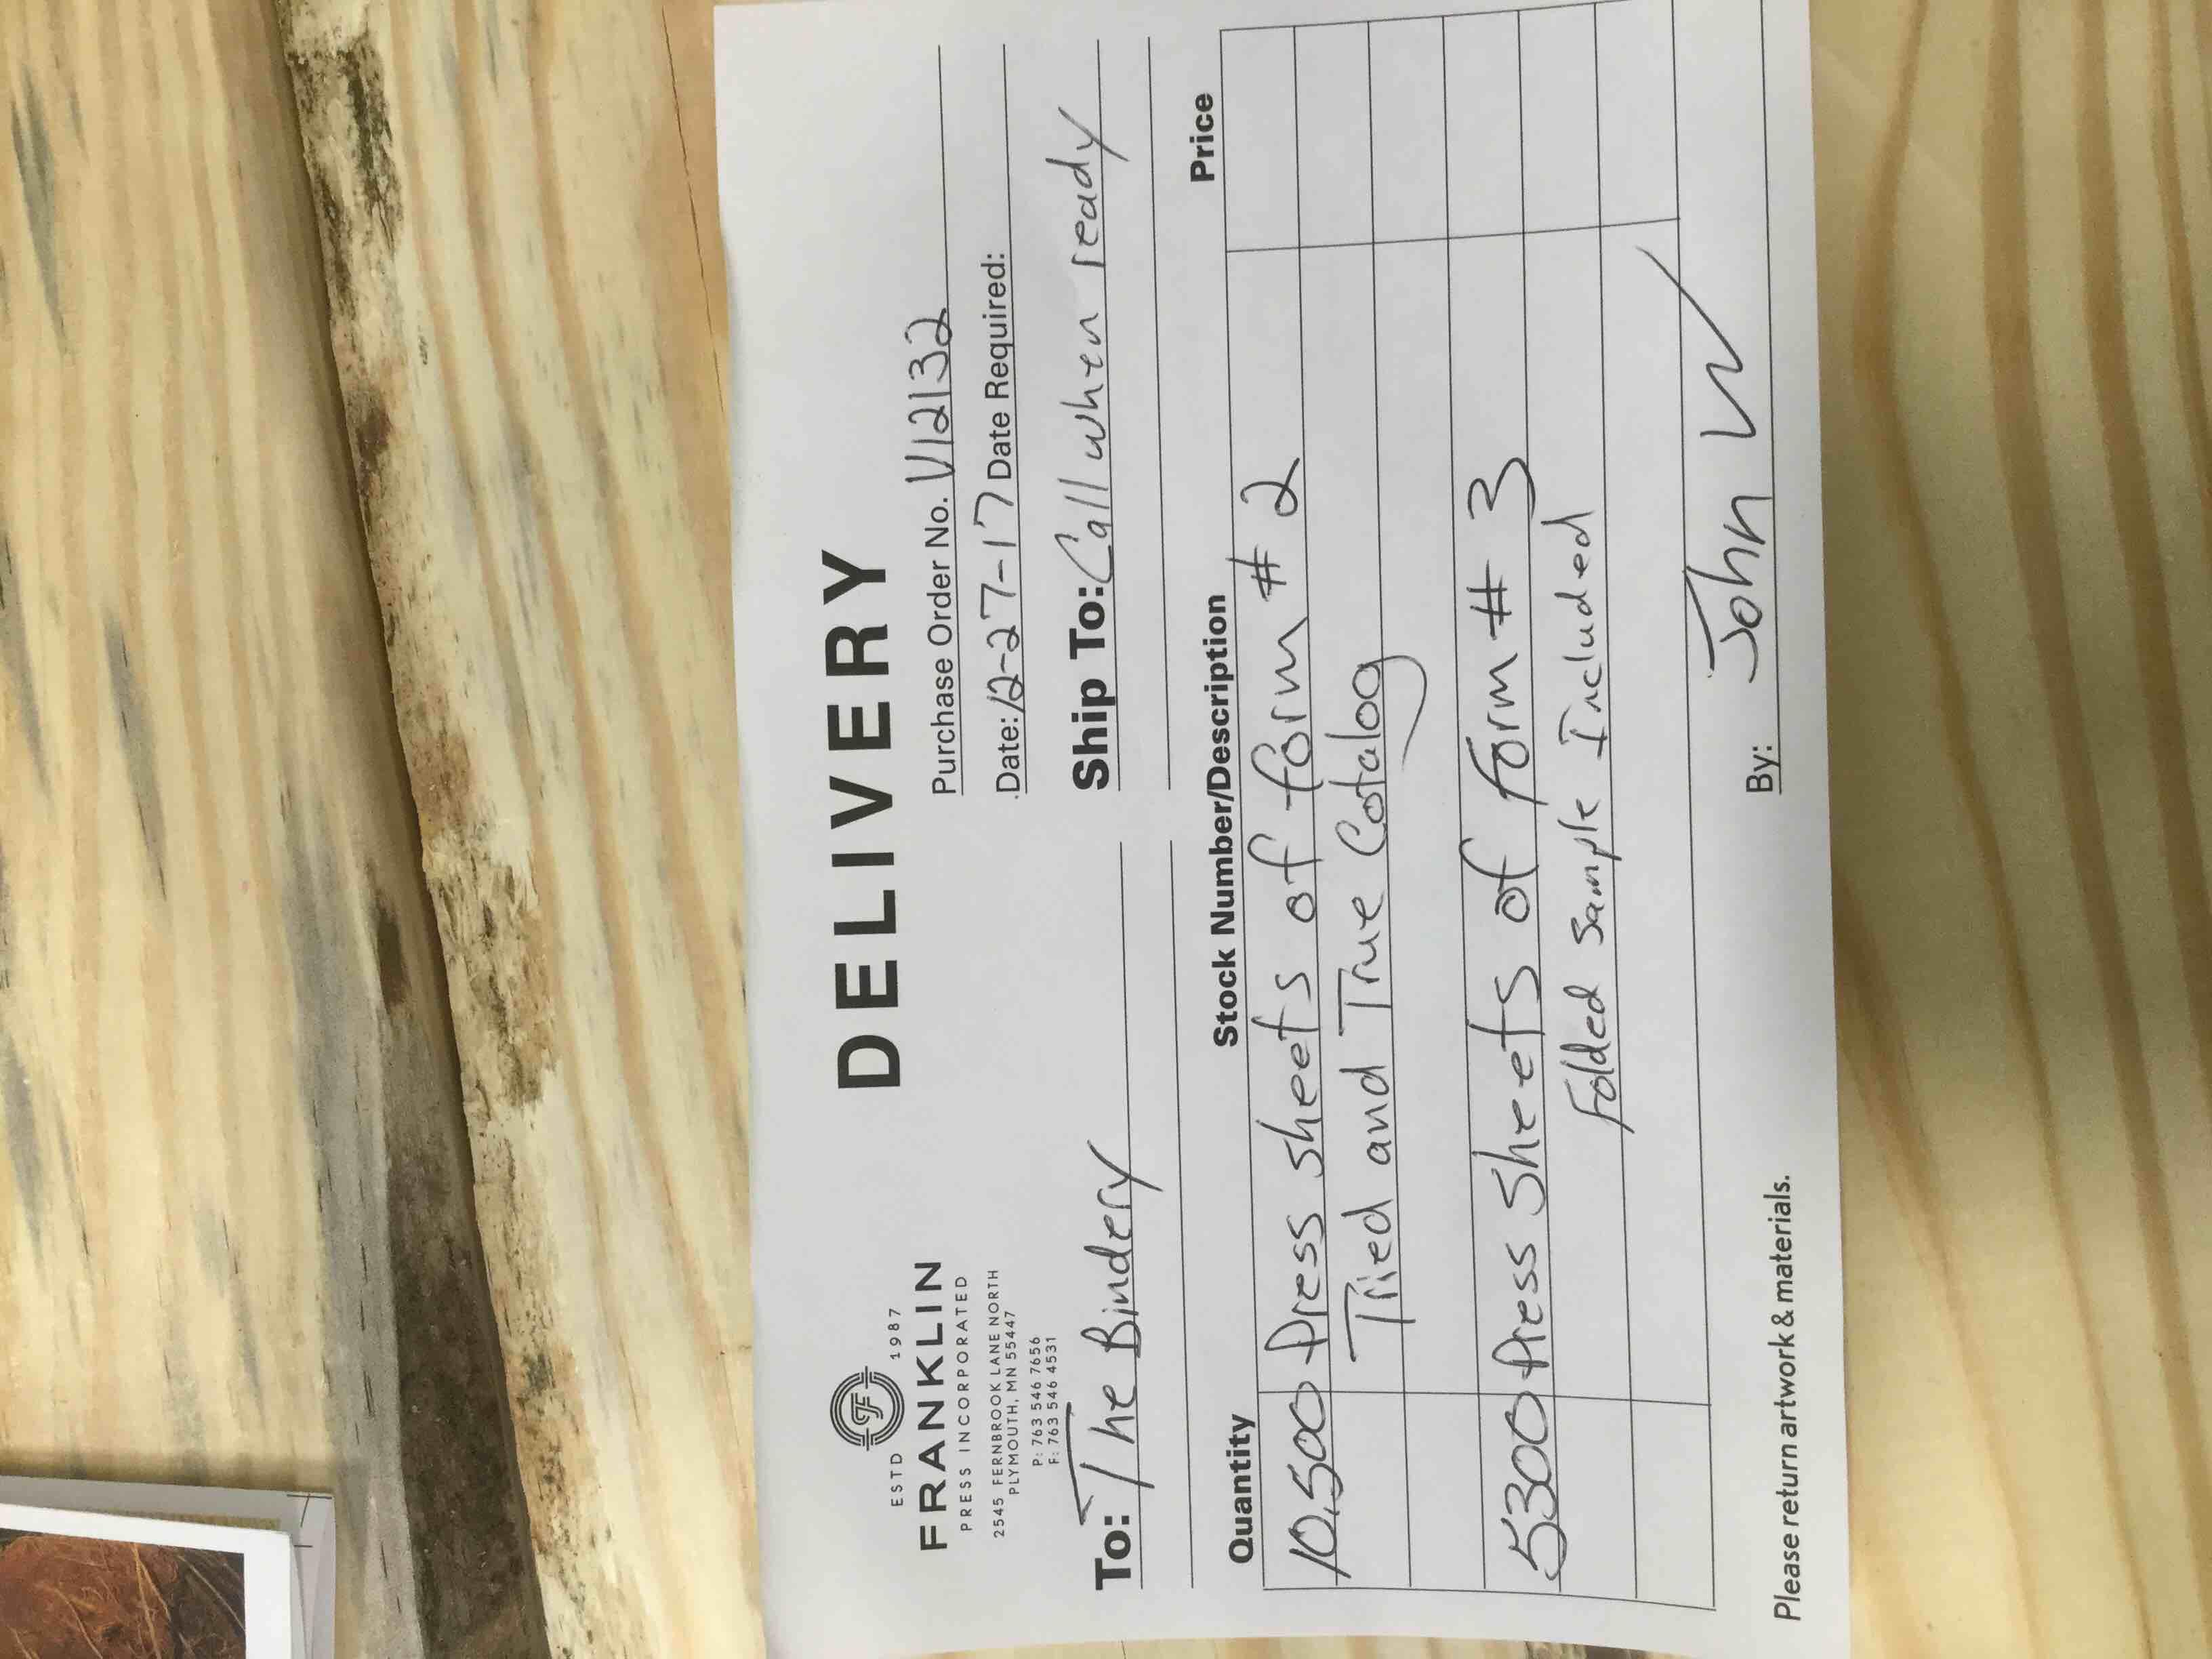 DELIVERY
ESTD 1987
FRANKLIN
PRESS INCORPORATED
2545 FERNBROOK LANE NORTH
PLYMOUTH, MN 55447
P: 763 546 7656
F: 763 546 4531
Purchase Order No. V12132
Date: 12-27-17 Date Required:
To: The Bindery
Ship To: Call when ready
Quantity Stock Number/Description Price
10,500 Press sheets of form # 2
Tried and True Catalog
5300 Press sheets of form # 3
Folded sample Included
By: John W
Please return artwork & materials.